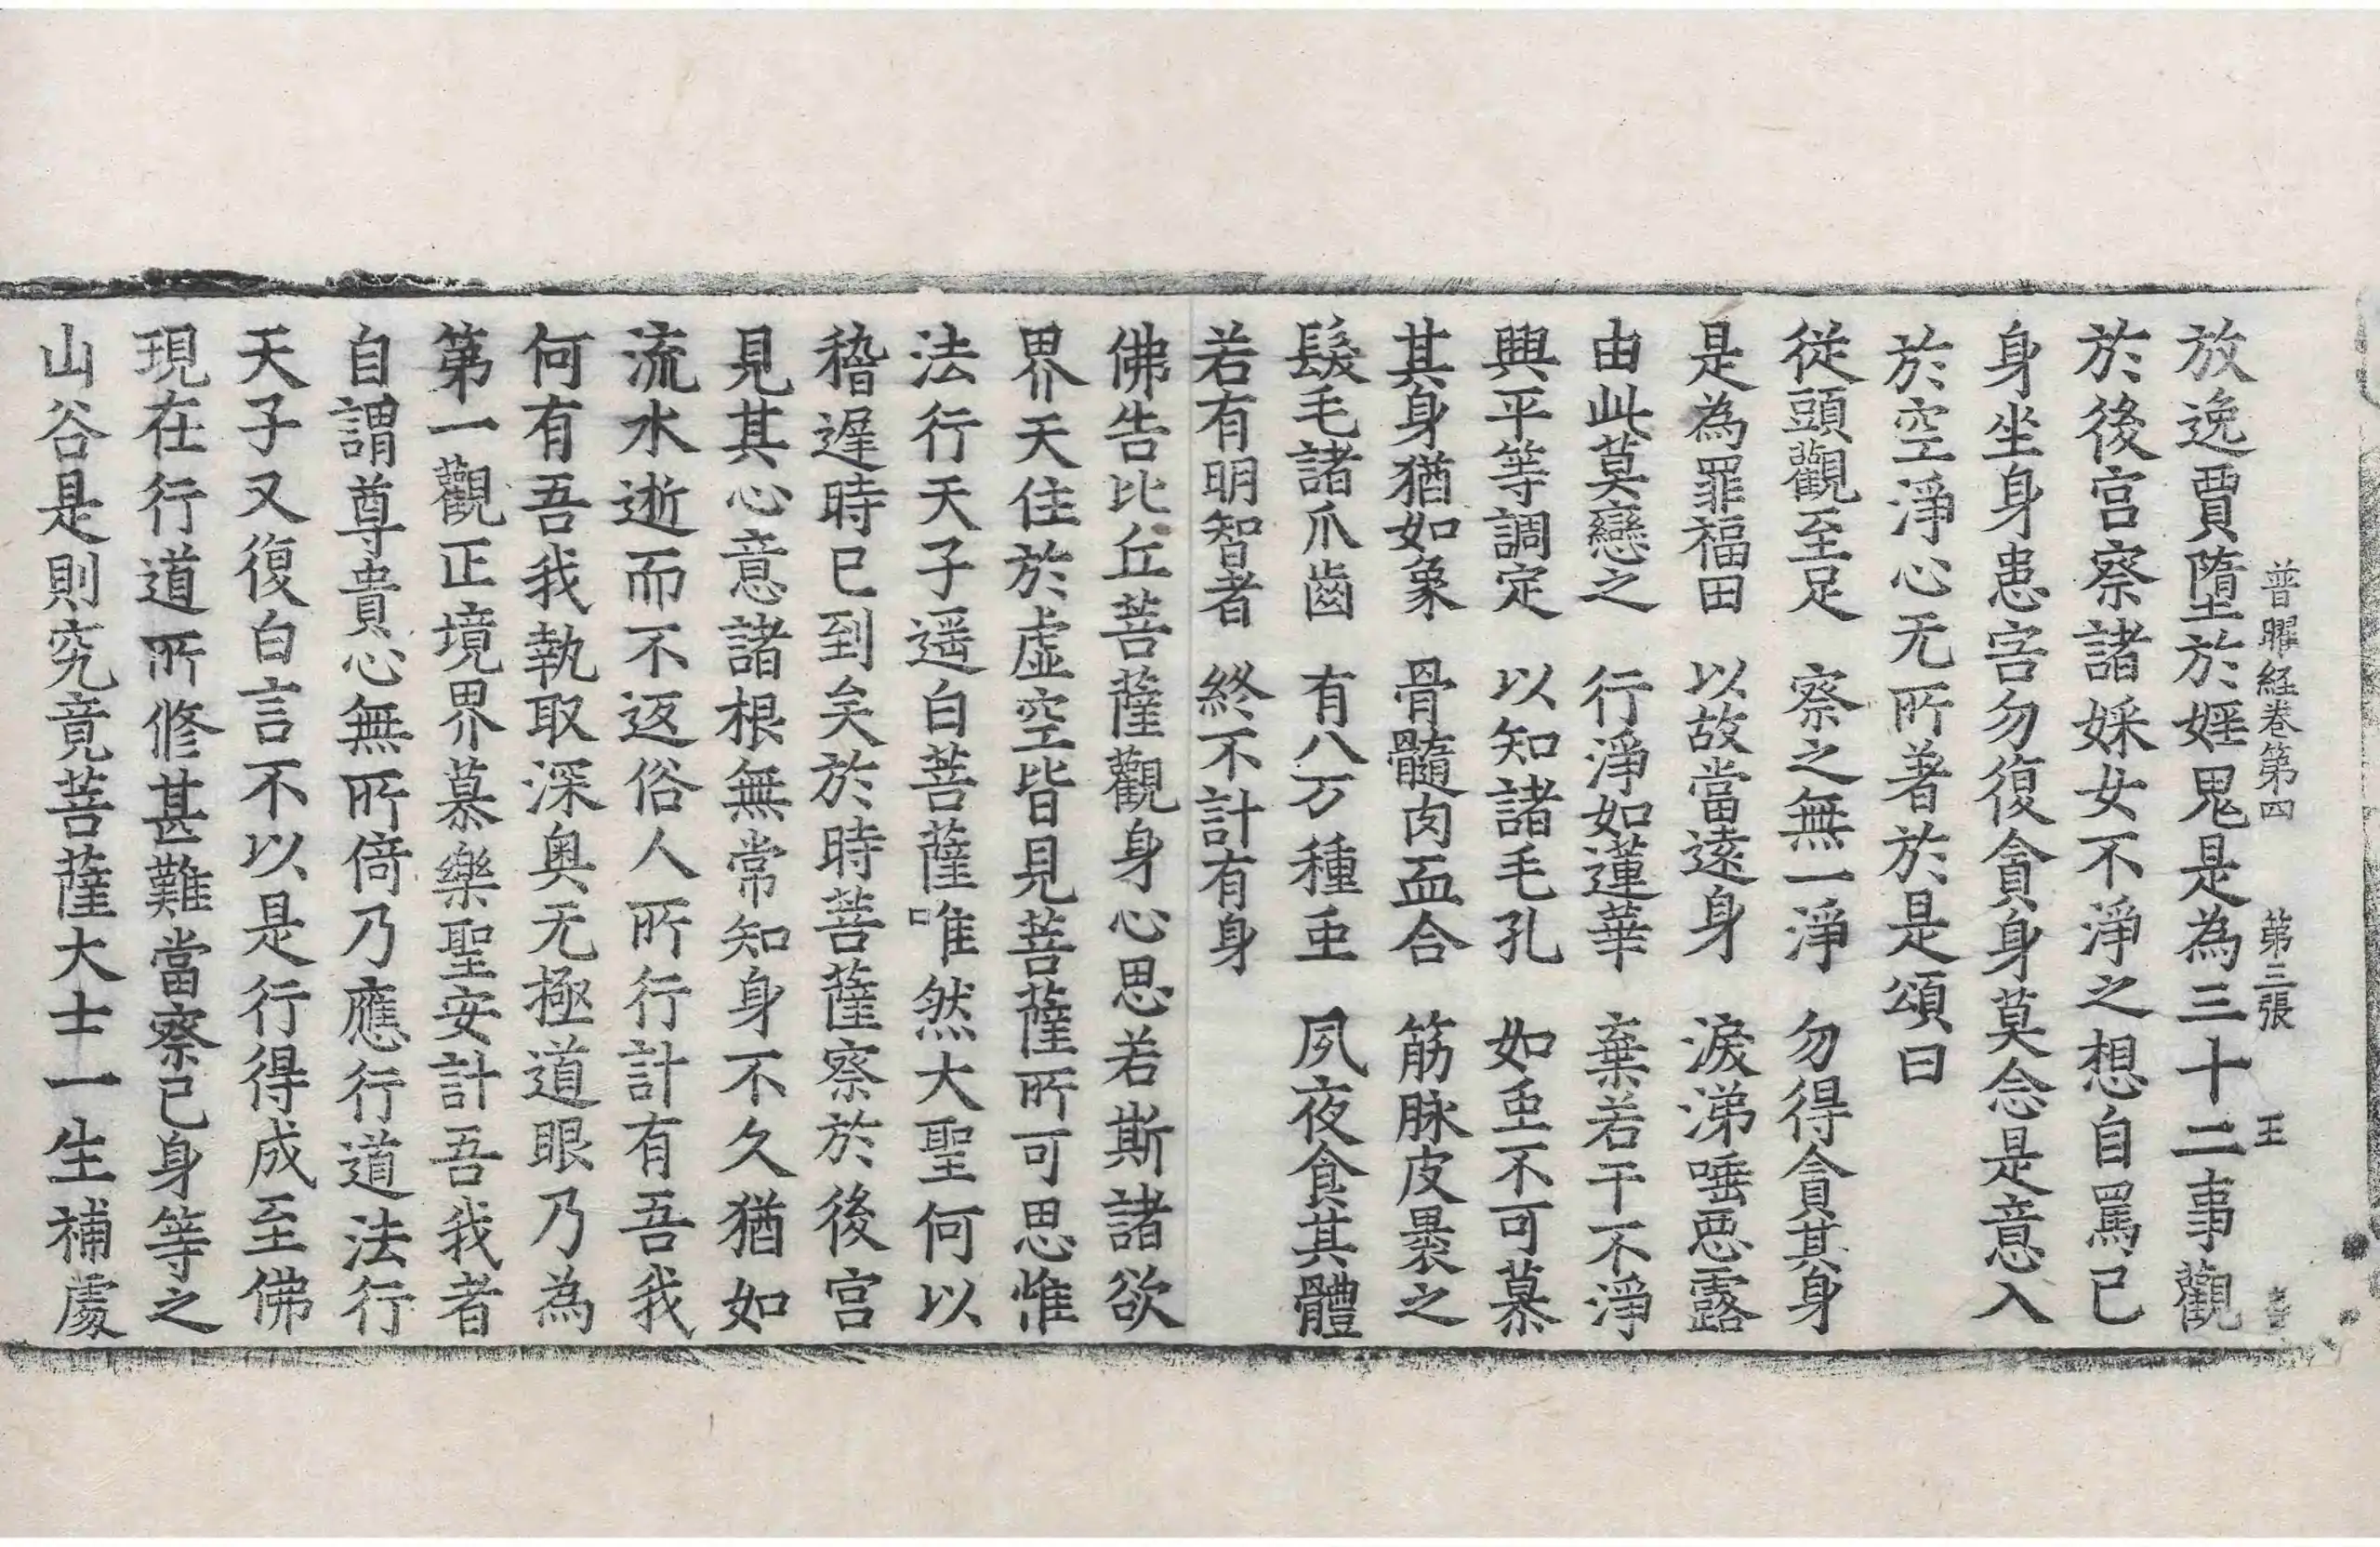 普曜経卷第四　第三張　王
放逸賈墮於婬鬼是為三十二事觀
於後宮察諸婇女不淨之想自罵己
身坐身患害勿復貪身莫念是意入
於空淨心无所著於是頌曰
從頭觀至足　察之無一淨　勿得貪其身
是為罪福田　以故當遠身　淚涕唾惡露
由此莫戀之　行淨如蓮華　棄若干不淨
興平等調定　以知諸毛孔　如䖝不可慕
其身猶如象　骨髓肉血合　筋脉皮裹之
髮毛諸爪齒　有八万種䖝　夙夜食其體
若有明智者　終不計有身
佛告比丘菩薩觀身心思若斯諸欲
界天住於虛空皆見菩薩所可思惟
法行天子遥白菩薩唯然大聖何以
稽遲時已到矣於時菩薩察於後宮
見其心意諸根無常知身不久猶如
流水逝而不返俗人所行計有吾我
何有吾我執取深奥无極道眼乃為
第一觀正境界慕樂聖安計吾我者
自謂尊貴心無所倚乃應行道法行
天子又復白言不以是行得成至佛
現在行道所修甚難當察己身等之
山谷是則究竟菩薩大士一生補處